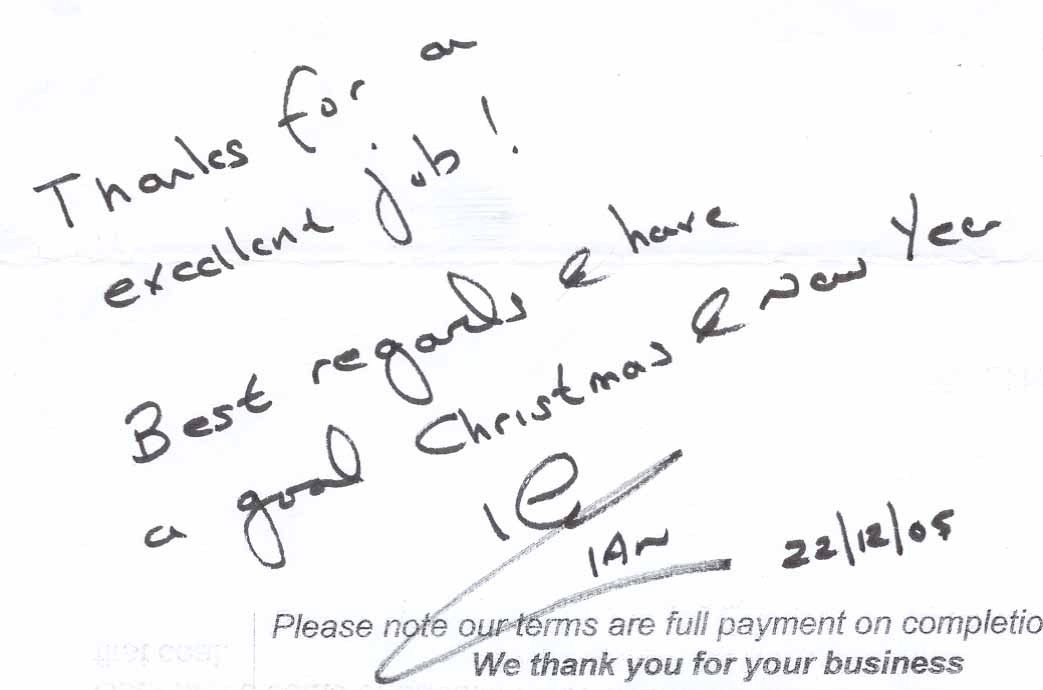 Thanks for an
excellent job!
Best regards & have
a good Christmas & New Year
IAN 22/12/05
Please note our terms are full payment on completio
We thank you for your business